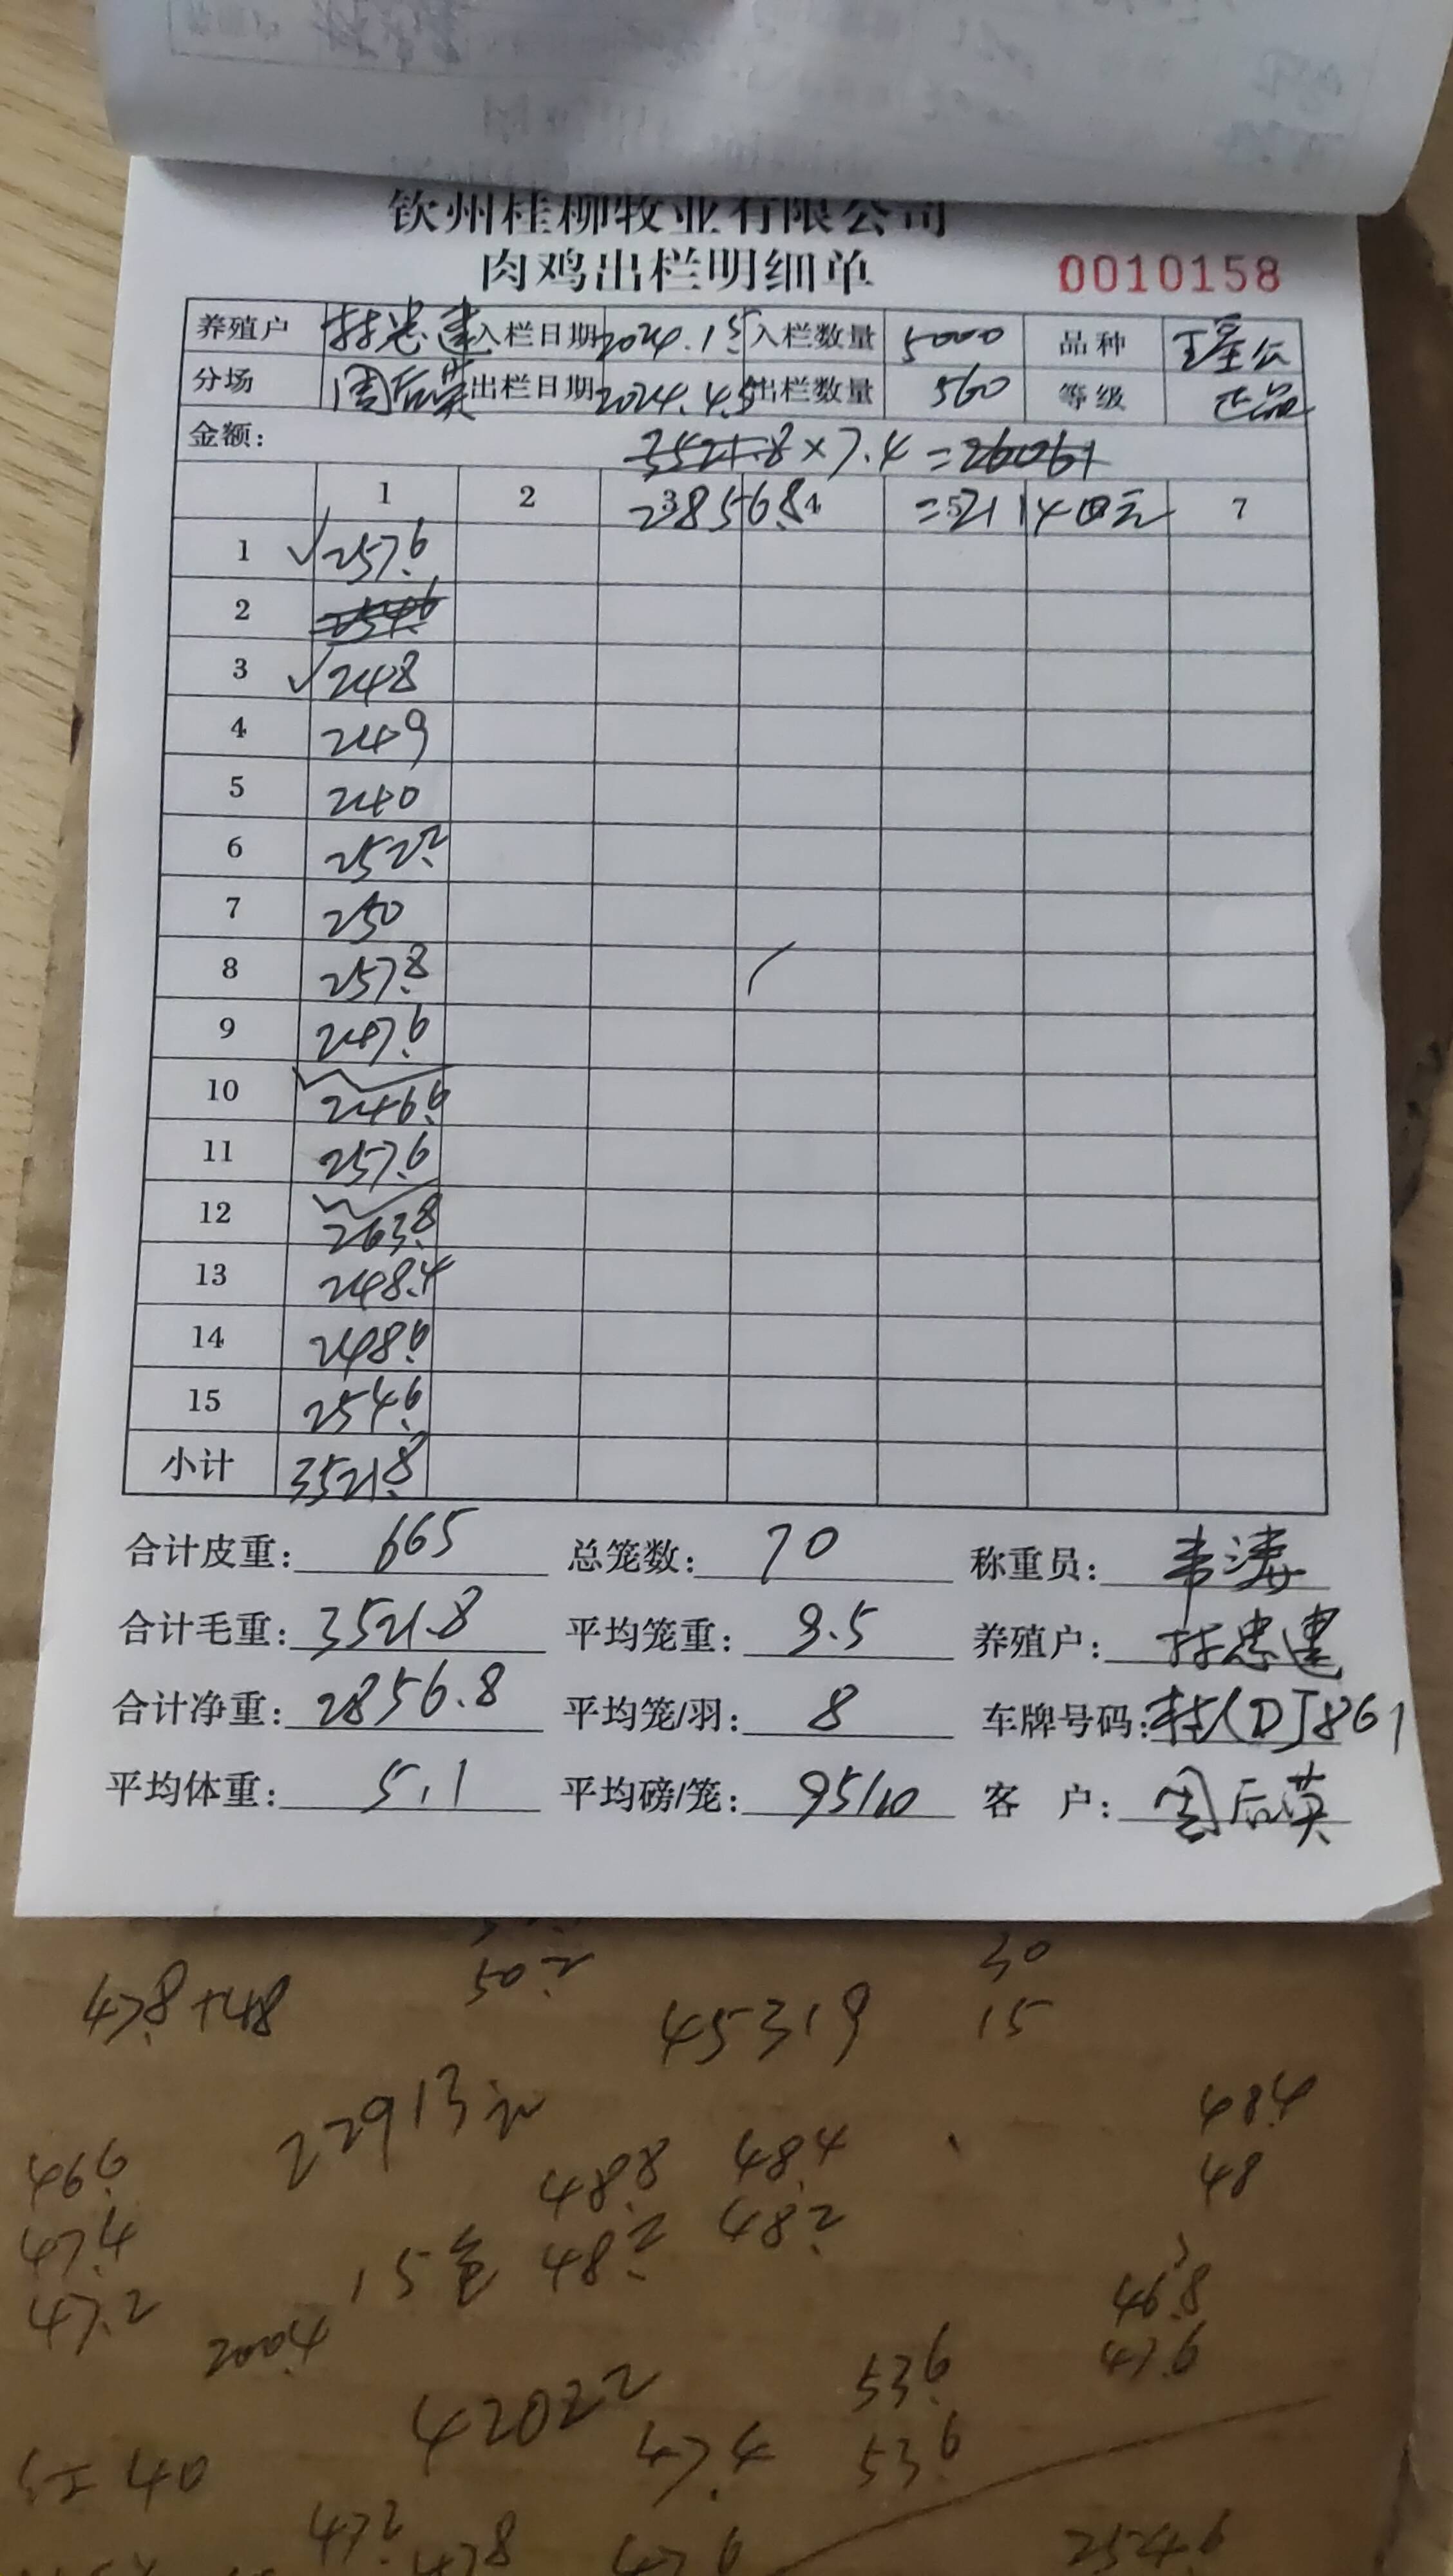 钦州桂柳牧业有限公司
肉鸡出栏明细单 0010158
养殖户 林忠建 入栏日期 2024.1.5 入栏数量 5000 品种 瑶公
分场 周后英 出栏日期 2024.4.5 出栏数量 560 等级 正品
金额: 3521.8×7.4=26061
1 2 3 4 5 6 7
2856.8 =21140元
1 257.6
2 254.6
3 248
4 249
5 240
6 252.2
7 250
8 257.8
9 247.6
10 246.6
11 257.6
12 263.8
13 248.4
14 248.6
15 254.6
小计 3521.8
合计皮重: 665 总笼数: 70 称重员: 韦涛
合计毛重: 3521.8 平均笼重: 9.5 养殖户: 林忠建
合计净重: 2856.8 平均笼/羽: 8 车牌号码: 861
平均体重: 5.1 平均磅/笼: 95/10 客 户: 周后英
50.2 30
47.8+48 45319 15
22913元 48.4
46.6 48.8 48.4 48
47.4 15笼 48.2 48.2
47.2 46.8
200.4 53.6 47.6
42022 47.4 53.6
40
47.2 47.8 47.6 254.6